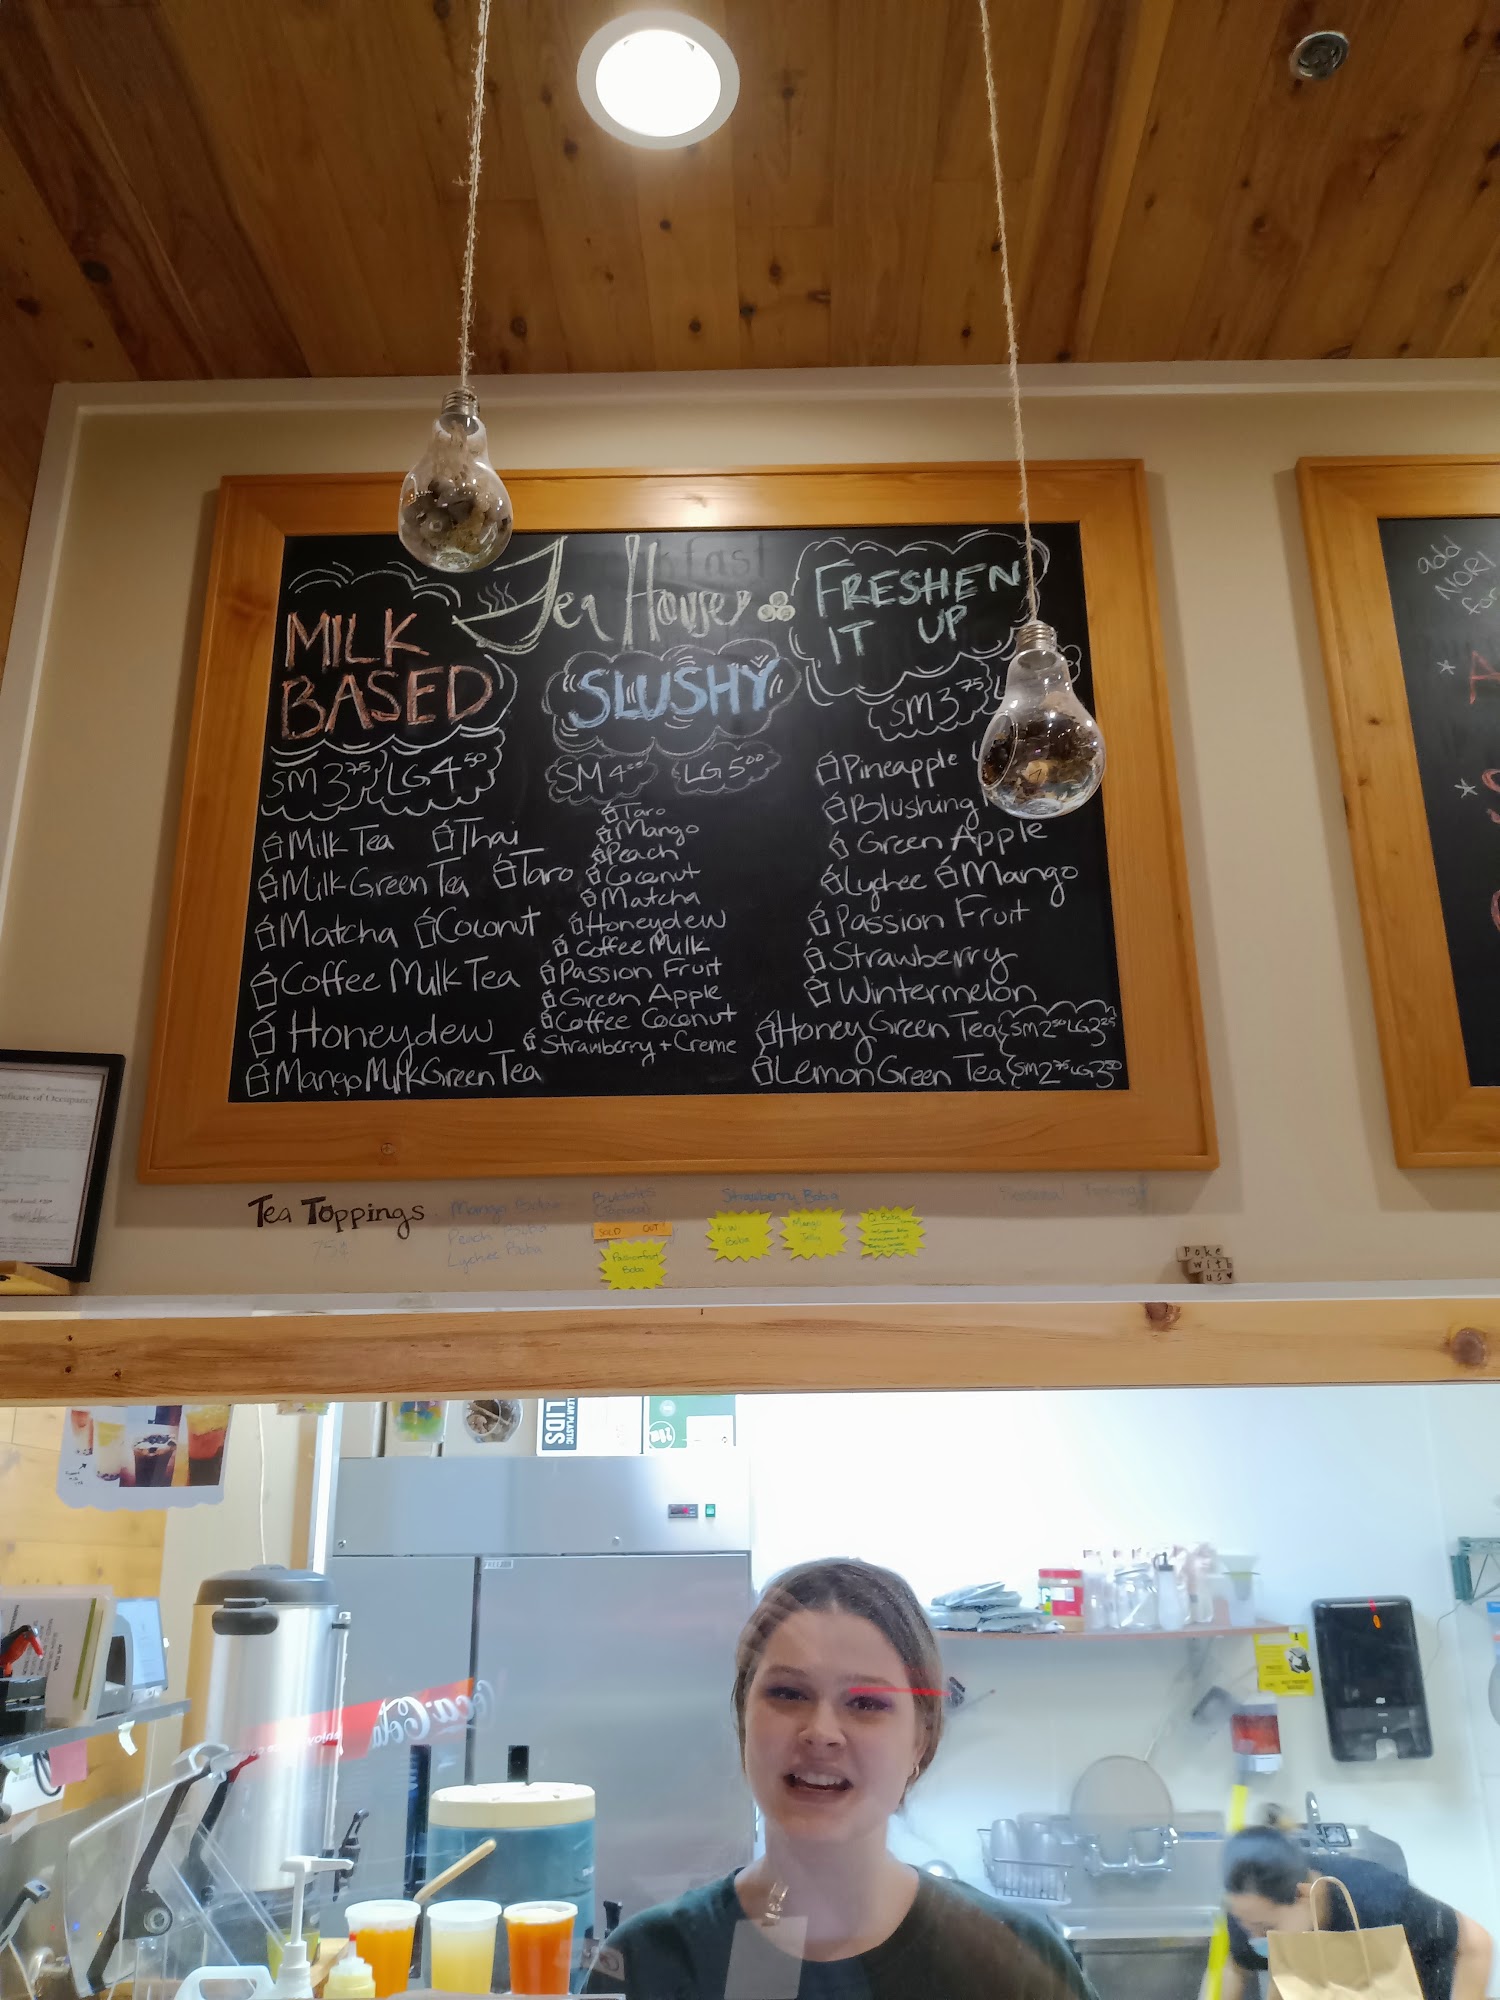 Tea House
MILK
BASED
SM 3.75 LG 4.50
Milk Tea Thai
Milk Green Tea Taro
Matcha Coconut
Coffee Milk Tea
Honeydew
Mango Milk Green Tea
SLUSHY
SM 4 LG 5.00
Taro
Mango
Peach
Coconut
Matcha
Honeydew
Coffee Milk
Passion Fruit
Green Apple
Coffee Coconut
Strawberry + Creme
FRESHEN
IT UP
SM 3.75
Pineapple
Blushing
Green Apple
Lychee Mango
Passion Fruit
Strawberry
Wintermelon
Honey Green Tea SM 2.50 LG 3.25
Lemon Green Tea SM 2.75 LG 3.50
add
NORI
for
Certificate of Occupancy
Tea Toppings
75¢
Mango Boba
Peach Boba
Lychee Boba
Bubbles
(Tapioca)
SOLD OUT
Passionfruit
Boba
Strawberry Boba
Kiwi
Boba
Mango
Jelly
Poke
with
us
LIDS
Coca-Cola
enjoy